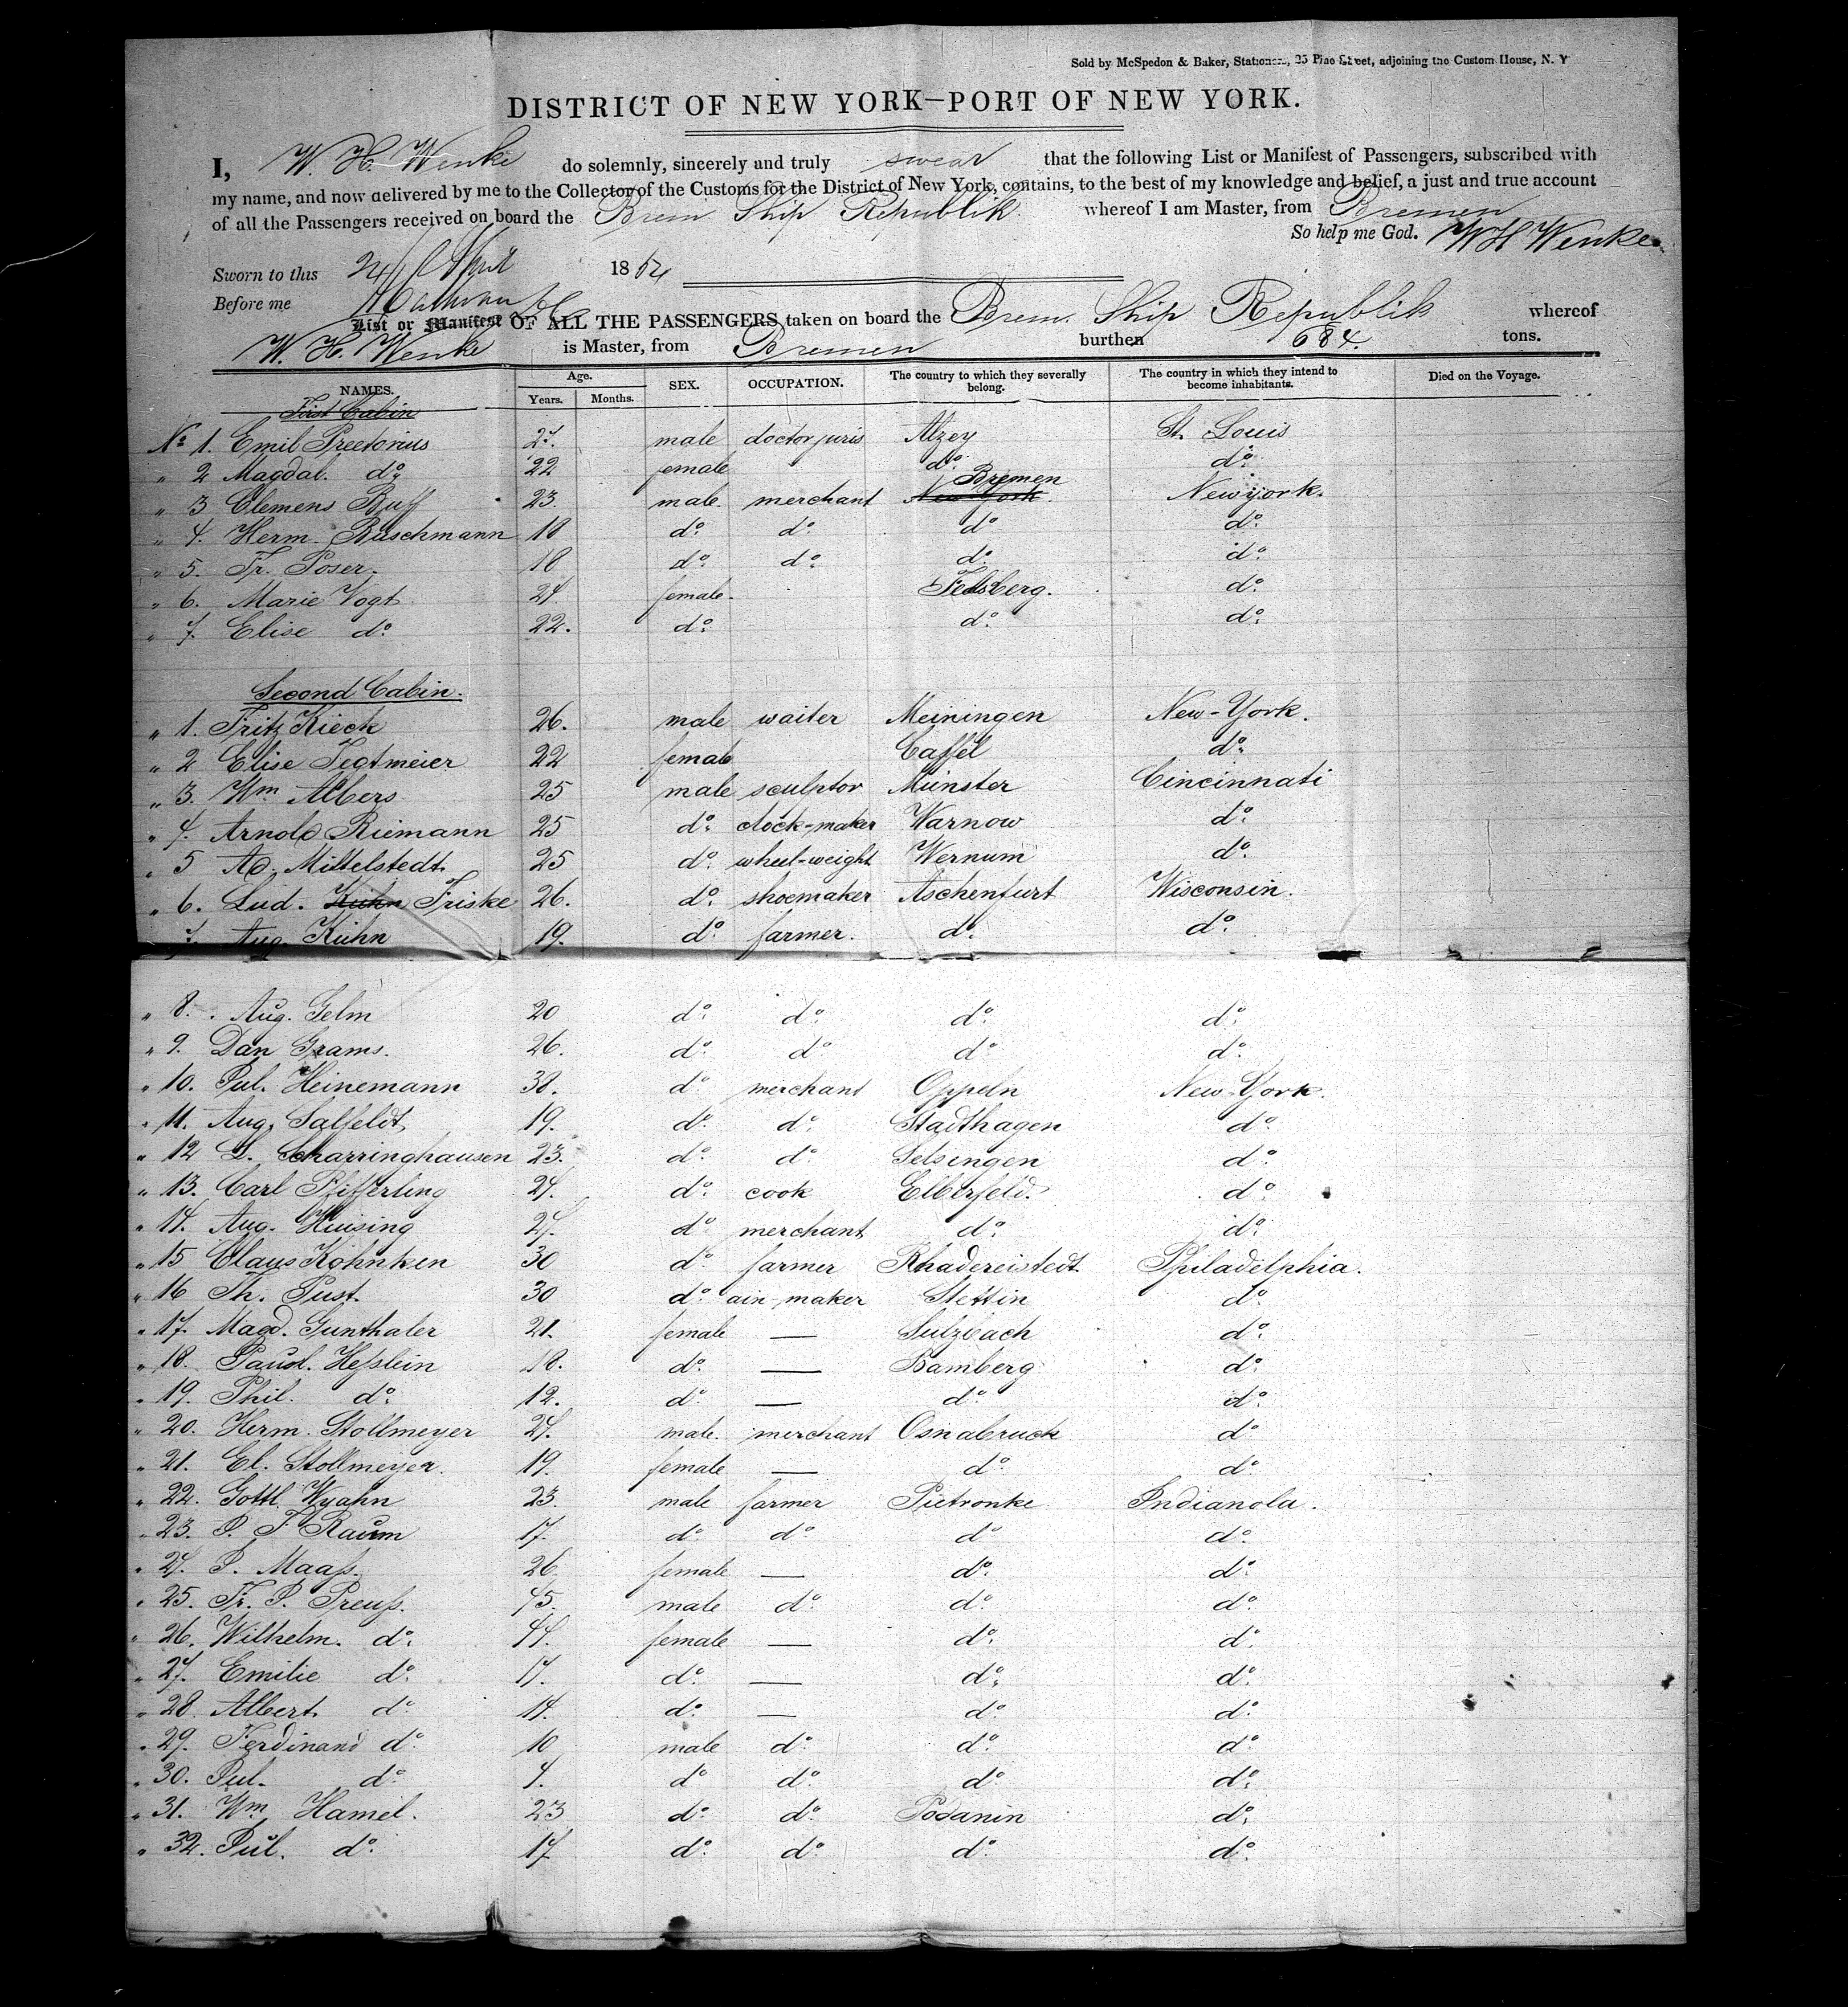 Sold by McSpedon & Baker, Stationers, 25 Pine Street, adjoining the Custom House, N. Y
DISTRICT OF NEW YORK—PORT OF NEW YORK.
I, W. H. Wenke do solemnly, sincerely and truly swear that the following List or Manifest of Passengers, subscribed with
my name, and now delivered by me to the Collector of the Customs for the District of New York, contains, to the best of my knowledge and belief, a just and true account
of all the Passengers received on board the Brem Ship Republik whereof I am Master, from Bremen
So help me God. W H Wenke
Sworn to this 24 April 1854
Before me
List or Manifest OF ALL THE PASSENGERS taken on board the Brem. Ship Republik whereof
W. H. Wenke is Master, from Bremen burthen 684. tons.
NAMES. Age. Years. Months. SEX. OCCUPATION. The country to which they severally belong. The country in which they intend to become inhabitants. Died on the Voyage.
First Cabin
No 1. Emil Preetorius 27. male doctor juris Alzey St. Louis
" 2 Magdal. do 22 female do. do.
" 3 Clemens Buff 23. male. merchant New York Bremen Newyork.
" 4. Herm. Buschmann 18 do. do. do do.
" 5. Fr. Poser. 18 do. do. do. do.
" 6. Marie Vogt 24. female. Felsberg. do.
" 7. Elise do. 22. do. do. do.
Second Cabin.
" 1. Fritz Kieck 26. male waiter Meiningen New-York.
" 2 Elise Tegtmeier 22 female Caſsel do.
" 3. Wm Albers 25 male sculptor Münster Cincinnati
" 4. Arnold Riemann 25 do. clock-maker Warnow do.
" 5 Ad. Mittelstedt 25 do. wheel-weight Wernum do.
" 6. Lud. Kühn Friske 26. do. shoemaker Aschenfurt Wisconsin.
" 7. Aug. Kühn 19. do farmer. do. do.
" 8. Aug. Gelm 20 do. do. do. do.
" 9. Dan Grams. 26. do. do do. do.
" 10. Jul. Heinemann 38. do. merchant Oppeln New-York.
" 11. Aug. Salfeldt 19. do. do. Stadthagen do.
" 12 L. Scharringhausen 23. do. do. Selsingen do.
" 13. Carl Pfifferling 24. do. cook Elberfeld. do.
" 14. Aug. Huising 27. do merchant do. do.
" 15 Claus Köhnken 30 do. farmer Rhadereistedt Philadelphia.
" 16 Th. Pust. 30 do. ain-maker Stettin do.
" 17. Magd. Gunthaler 21. female — Sulzbach do.
" 18. Heſslein 18. do. — Bamberg do.
" 19. Phil. do. 12. do. — do. do.
" 20. Herm. Stollmeyer 24. male. merchant Osnabruck do
" 21. El. Stollmeyer. 19. female — do. do.
" 22. Gottl. Wyahn 23. male farmer Pietronke Indianola.
" 23. J. F. Raüm 17. do. do. do do.
" 24. J. Maaſs. 26. female — do. do.
" 25. Fr. J. Preuſs. 45. male do. do. do.
" 26. Wilhelm. do. 44. female — do. do.
" 27. Emilie do. 17. do. — do. do.
" 28. Albert do. 14. do. — do. do.
" 29. Ferdinand do. 10 male do. do. do.
" 30. Jul. do. 4. do do. do. do.
" 31. Wm. Hamel. 23 do. do. Podanin do.
" 32. Jül. do. 17 do. do. do. do.